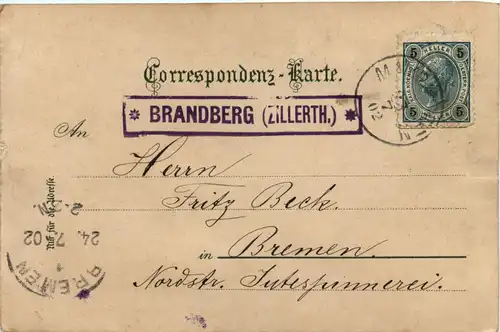 Correspondenz-Karte.
5 HELLER 5
5 5
* BRANDBERG (ZILLERTH.) *
An
Herrn
Fritz Beck.
in Bremen.
Nordstr. Jutespinnerei.
Nur für die Adresse.
BREMEN
1
24.7.02
2-3N.